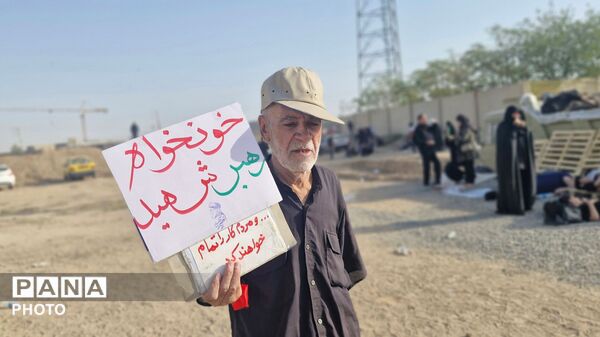 خونخواه
رهبر شهید
...و مردم کار را تمام
خواهند کرد
PANA
PHOTO